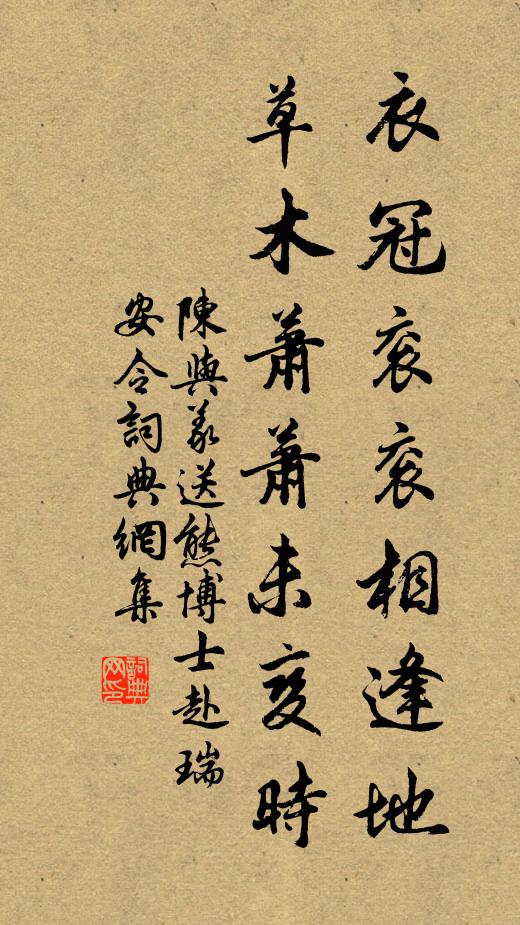 衣冠衮衮相逢地
草木萧萧未变時
陳與義送熊博士赴瑞
安令詞典網集
詞典網印